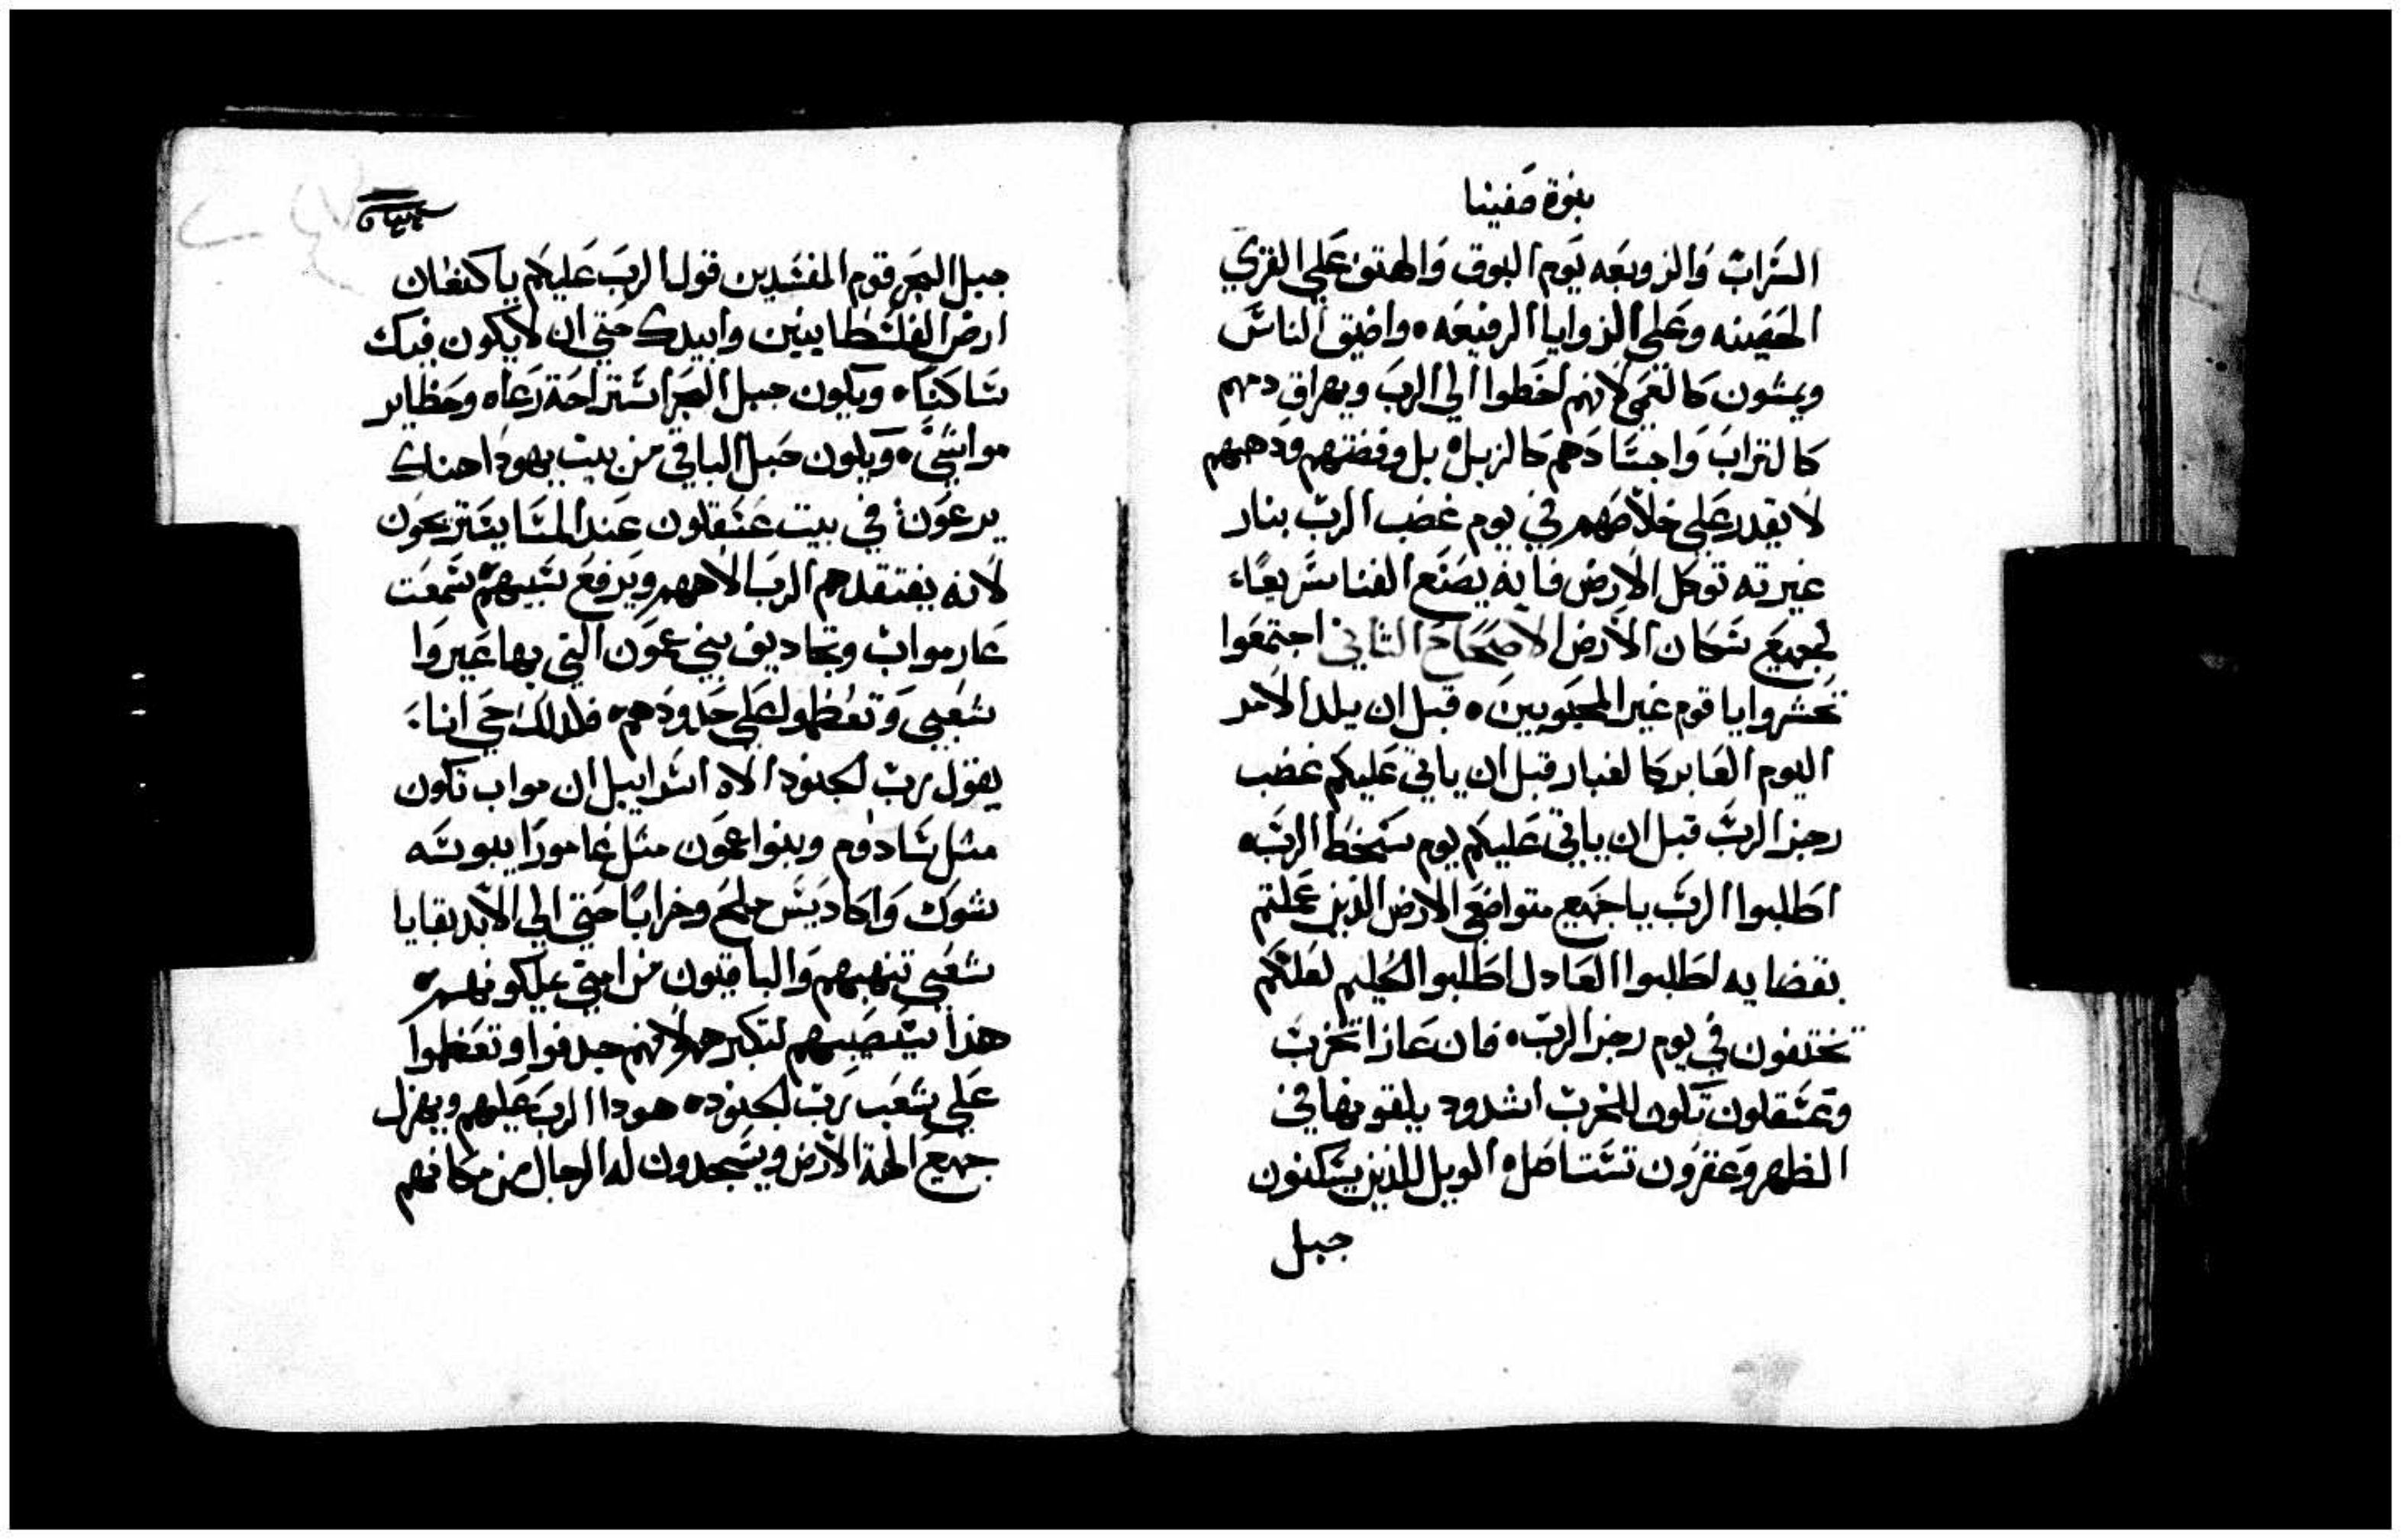 نبوة صفينا
السراب والزوبعه يوم البوق والهتوف علي القري
الحصينه وعلي الزوايا الرفيعه٠ واضيق الناس
ويمشون كالعمي لانهم اخطوا الي الرب ويهراق دمهم
كالتراب واجسادهم كالزبل٥ بل وفضتهم ودهبهم
لا يقدر علي خلاصهم في يوم غضب الرب بنار
غيرته توكل الارض فانه يصنع الفنا سريعًا
لجميع سكان الارض الاصحاح الثاني اجتمعوا
تحشروا يا قوم غير المحبوبين٠ قبل ان يلد الامر
اليوم العابر كالغبار قبل ان ياتي عليكم غضب
رجز الرب قبل ان ياتي عليكم يوم سخط الرب٠
اطلبوا الرب يا جميع متواضعي الارض الذين عملتم
بقضايه اطلبوا العادل اطلبوا الحليم لعلكم
تختفون في يوم رجز الرب٠ فان عازا تخرب
وعسقلون تكون للخرب اشدود يلقونها في
الظهر وعقرون تستاصل٥ الويل للذين يسكنون
جبل
جبل البحر قوم المفسدين قول الرب عليكم يا كنعان
ارض الفلسطانيين وابيدك حتي ان لا يكون فيك
ساكنًا٠ ويكون جبل البحر استراحة رعاه وحظاير
مواشي٠ ويكون حبل الباقي من بيت يهودا هناك
يرعون في بيت عسقلون عند المسا يستريحون
لانه يفتقدهم الرب الاههم ويرفع سبيهم سمعت
عار مواب وتجاديف بني عمون التي بها عيروا
شعبي وتعظموا علي حدودهم٠ فلدلك حي انا
يقول رب الجنود الاه اسراييل ان مواب تكون
مثل سادوم وبنوا عمون مثل غامورا يبوسه
شوك واكاديس ملح وخرابًا حتي الي الابد بقايا
شعبي تنهبهم والباقيون من امتي يملكونهم٠
هذا سيصيبهم لتكبرهم لانهم جدفوا وتعظموا
علي شعب رب الجنود٠ هودا الرب عليهم ويهزل
جميع الهة الارض ويسجدون له الرجال من مكانهم